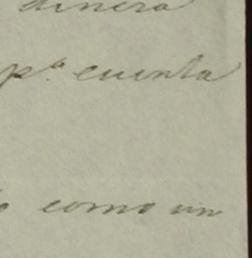 dinero
pª cuenta
como un